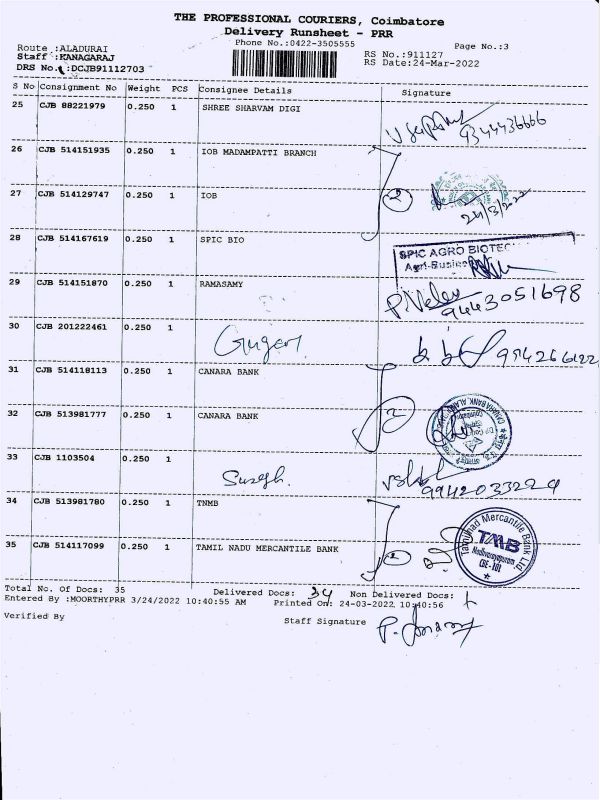 THE PROFESSIONAL COURIERS, Coimbatore
Delivery Runsheet - PRR
Phone No.:0422-3505555
Page No.:3
Route :ALADURAI
RS No.:911127
Staff :KANAGARAJ
RS Date:24-Mar-2022
DRS No. :DCJB91112703
S No Consignment No Weight PCS Consignee Details Signature
25 CJB 88221979 0.250 1 SHREE SHARVAM DIGI
9344436666
26 CJB 514151935 0.250 1 IOB MADAMPATTI BRANCH
27 CJB 514129747 0.250 1 IOB 2
24/3/2022
28 CJB 514167619 0.250 1 SPIC BIO
SPIC AGRO BIOTEC
29 CJB 514151870 0.250 1 RAMASAMY
9443051698
30 CJB 201222461 0.250 1
31 CJB 514118113 0.250 1 CANARA BANK
32 CJB 513981777 0.250 1 CANARA BANK 2
33 CJB 1103504 0.250 1
Suresh.
9942033229
34 CJB 513981780 0.250 1 TNMB
35 CJB 514117099 0.250 1 TAMIL NADU MERCANTILE BANK 2
Tamilnad Mercantile Bank Ltd.
TMB
CBE-101
Total No. Of Docs: 35 Delivered Docs: 34 Non Delivered Docs: 1
Entered By :MOORTHYPRR 3/24/2022 10:40:55 AM Printed On: 24-03-2022 10:40:56
Verified By Staff Signature